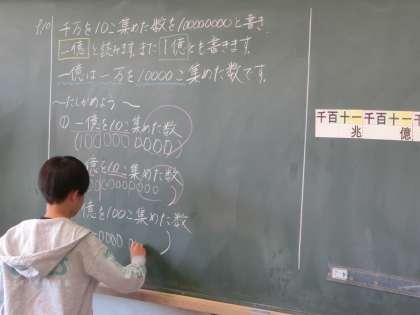 千万を10こ集めた数を100000000と書き、
一億と読みます。また1億とも書きます。
一億は一万を10000こ集めた数です。
〜たしかめよう〜
① 一億を10こ集めた数
(1000000000)
億を10こ集めた数
億を100こ集めた数
千百十一千百十一千
兆 億